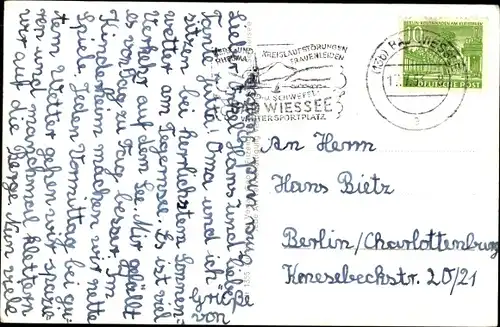 Lieber Onkel Hans und liebe
Tante Jutta! Oma und ich
sitzen bei herrlichstem Sonnen-
wetter am Tegernsee. Es ist viel
Verkehr auf dem See. Mir gefällt
es von Tag zu Tag besser. Im
Kinderheim machen wir nette
Spiele. Jeden Vormittag bei gu-
tem Wetter gehen wir spazie-
ren und manchmal klettern
wir auf die Berge. Nun viele
Grüße von
HERZ- UND KREISLAUFSTÖRUNGEN
RHEUMA FRAUENLEIDEN
JOD SCHWEFEL
BAD WIESSEE
WINTERSPORTPLATZ
(13b) BAD WIESSEE
a
10
DEUTSCHE POST
An Herrn
Hans Bietz
Berlin/Charlottenburg
Knesebeckstr. 20/21